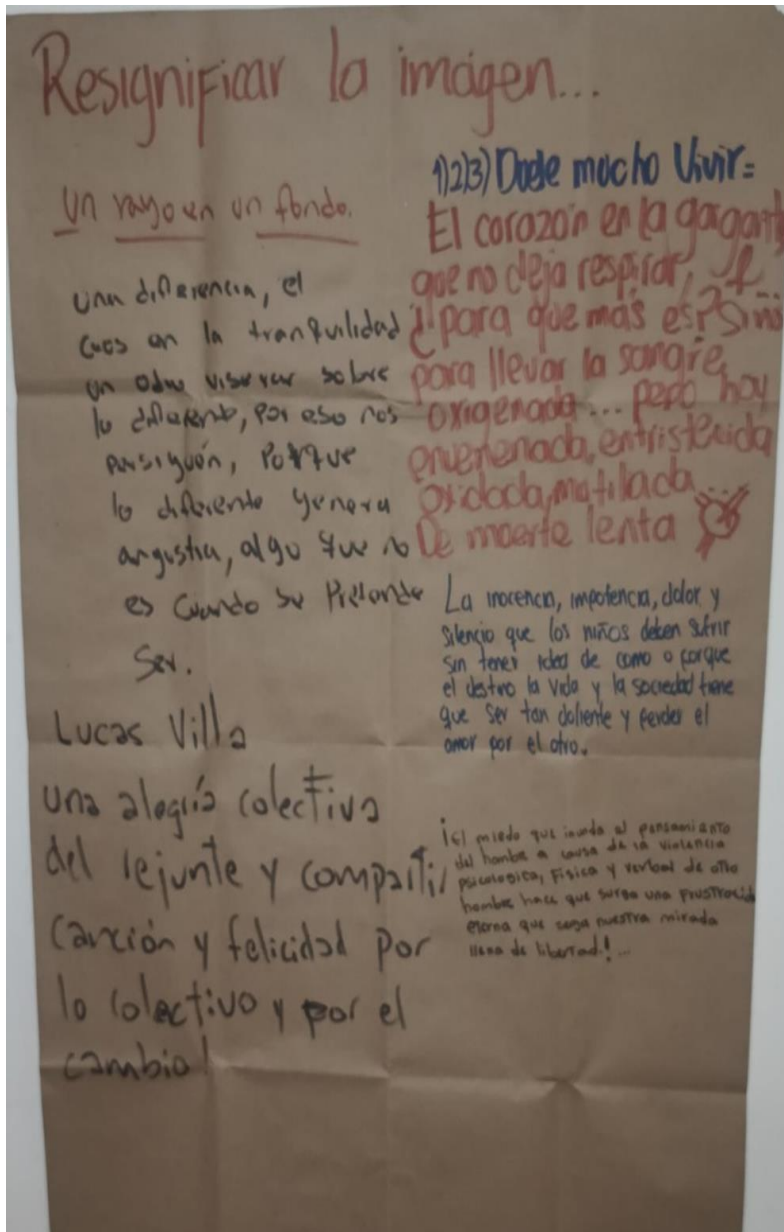 Resignificar la imágen...
Un rayo en un fondo.
una diferencia, el
caos en la tranquilidad
un odio visceral sobre
lo diferente, por eso nos
persiguen, Porque
lo diferente genera
angustia, algo que no
es cuando se Pretende
Ser.
Lucas Villa
una alegría colectiva
del rejunte y compartir
canción y felicidad por
lo colectivo y por el
cambio!
1)2)3) Duele mucho Vivir=
El corazón en la garganta
que no deja respirar,
¿para que más es? Sino
para llevar la sangre
oxigenada... pero hoy
envenenada, entristecida
oxidada, mutilada...
De muerte lenta
La inocencia, impotencia, dolor y
silencio que los niños deben sufrir
sin tener idea de como o porque
el destino la vida y la sociedad tiene
que ser tan doliente y perder el
amor por el otro.
¡El miedo que inunda al pensamiento
del hombre a causa de la violencia
psicologica, Fisica y verbal de otro
hombre hace que surga una frustración
eterna que nuestra mirada
llena de libertad!...